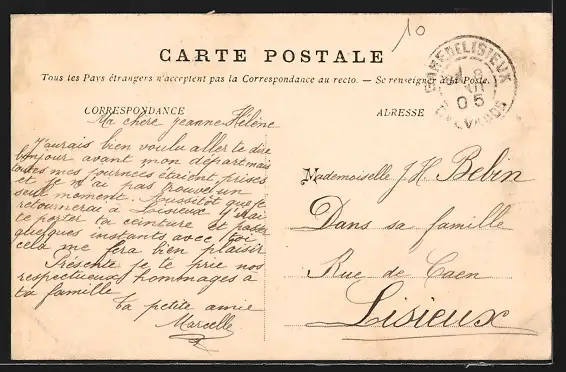 10
CARTE POSTALE
Tous les Pays étrangers n'acceptent pas la Correspondance au recto. — Se renseigner à la Poste.
GARE DE LISIEUX
8
05
CALVADOS
CORRESPONDANCE
ADRESSE
Ma chère Jeanne-Hélène
J'aurais bien voulu aller te dire
bonjour avant mon départ mais
toutes mes journées étaient prises
et je n'ai pas trouvé un
seul moment. Aussitôt que je
retournerai à Lisieux j'irai
te porter ta ceinture et passer
quelques instants avec toi
cela me fera bien plaisir
Présente je te prie nos
respectueux hommages à
ta famille
ta petite amie
Marcelle
Mademoiselle J.H. Bebin
Dans sa famille
Rue de Caen
Lisieux